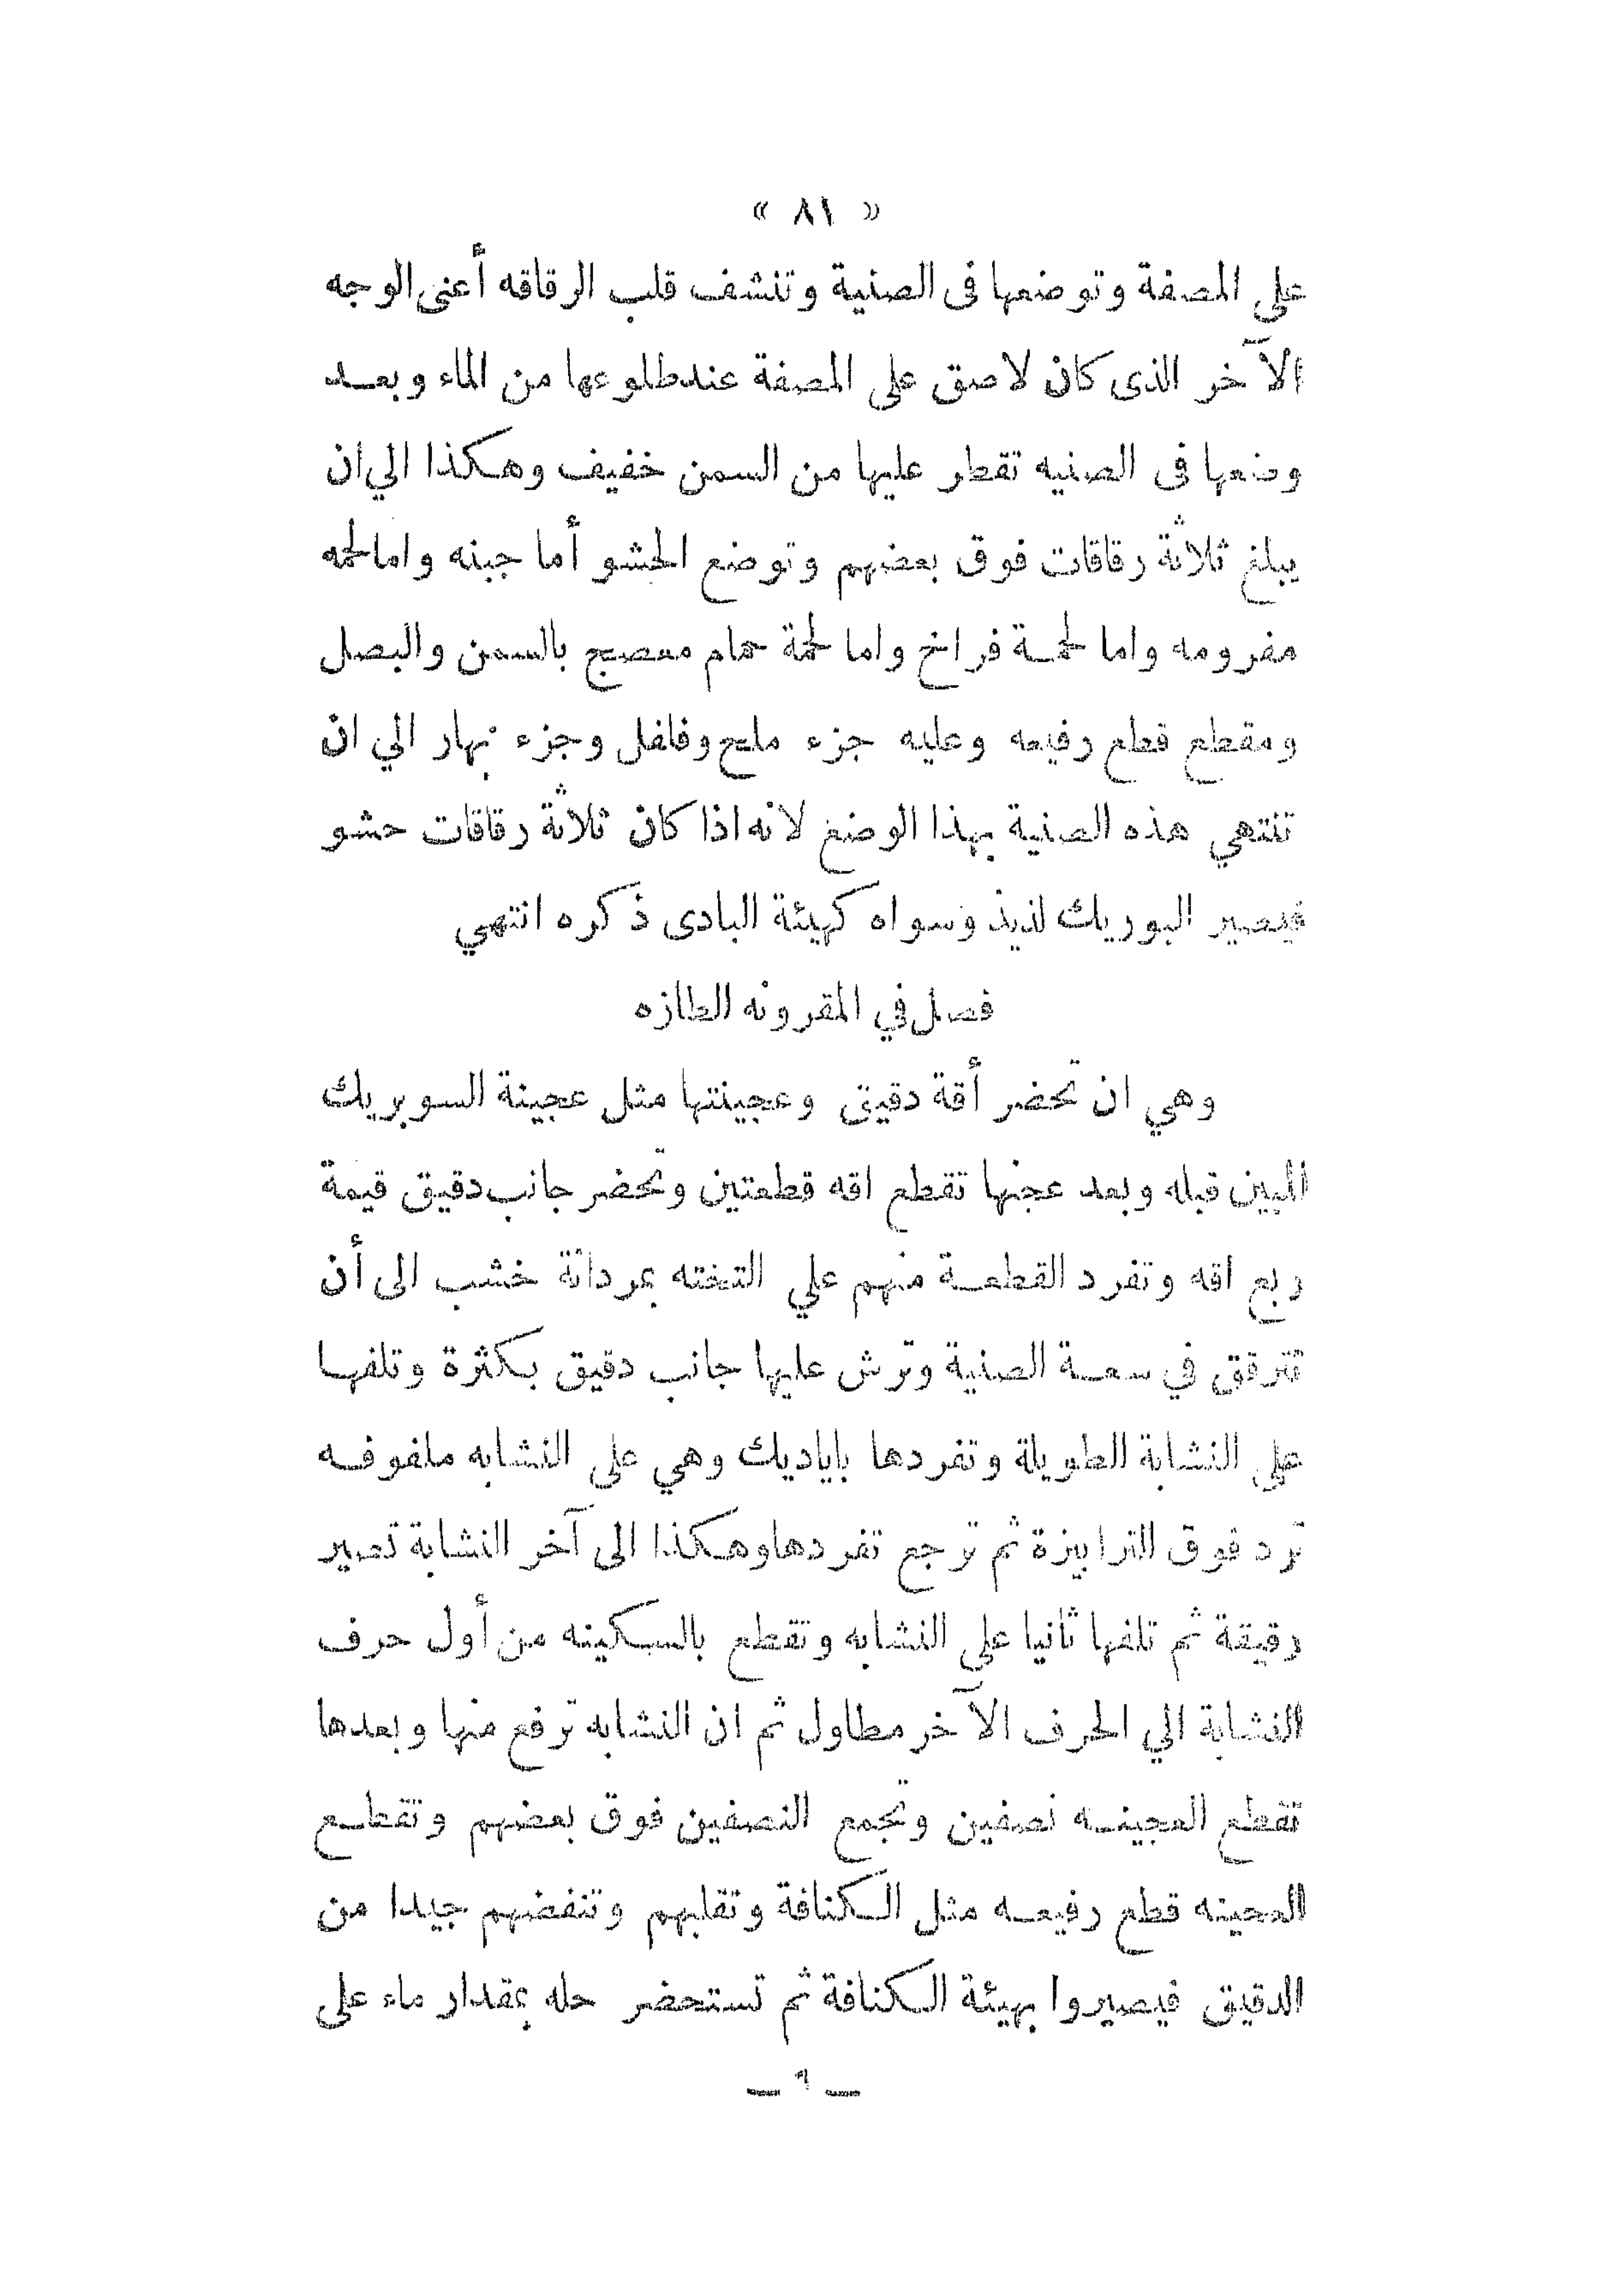 « ٨١ »
على المصفة وتوضعها فى الصنية وتنشف قلب الرقاقه أعنى الوجه
الآخر الذى كان لاصق على المصفة عندطلوعها من الماء وبعد
وضعها فى الصنيه تقطر عليها من السمن خفيف وهكذا الي ان
يبلغ ثلاثة رقاقات فوق بعضهم وتوضع الحشو أما جبنه واما لحمه
مفرومه واما لحمة فراخ واما لحمة حمام معصج بالسمن والبصل
ومقطع قطع رفيعه وعليه جزء ملح وفلفل وجزء بهار الي ان
تنتهي هذه الصنية بهذا الوضع لانه اذا كان ثلاثة رقاقات حشو
فيصير البوريك لذيذ وسواه كهيئة البادى ذكره انتهي
فصل في المقرونه الطازه
وهي ان تحضر أقة دقيق وعجينتها مثل عجينة السوبريك
المبين قبله وبعد عجنها تقطع اقه قطعتين وتحضر جانب دقيق قيمة
ربع اقه وتفرد القطعة منهم علي التخته بمردانة خشب الى أن
تترقق في سعة الصنية وترش عليها جانب دقيق بكثرة وتلفها
على النشابة الطويلة وتفردها باياديك وهي على النشابه ملفوفه
ترد فوق الترابيزة ثم ترجع تفردهاوهكذا الى آخر النشابة تصير
رقيقة ثم تلفها ثانيا على النشابه وتقطع بالسكينه من أول حرف
النشابة الي الحرف الآخر مطاول ثم ان النشابه ترفع منها وبعدها
تقطع العجينه نصفين وتجمع النصفين فوق بعضهم وتقطع
العجينه قطع رفيعه مثل الكنافة وتقلبهم وتنفضهم جيدا من
الدقيق فيصيروا بهيئة الكنافة ثم تستحضر حله بمقدار ماء على